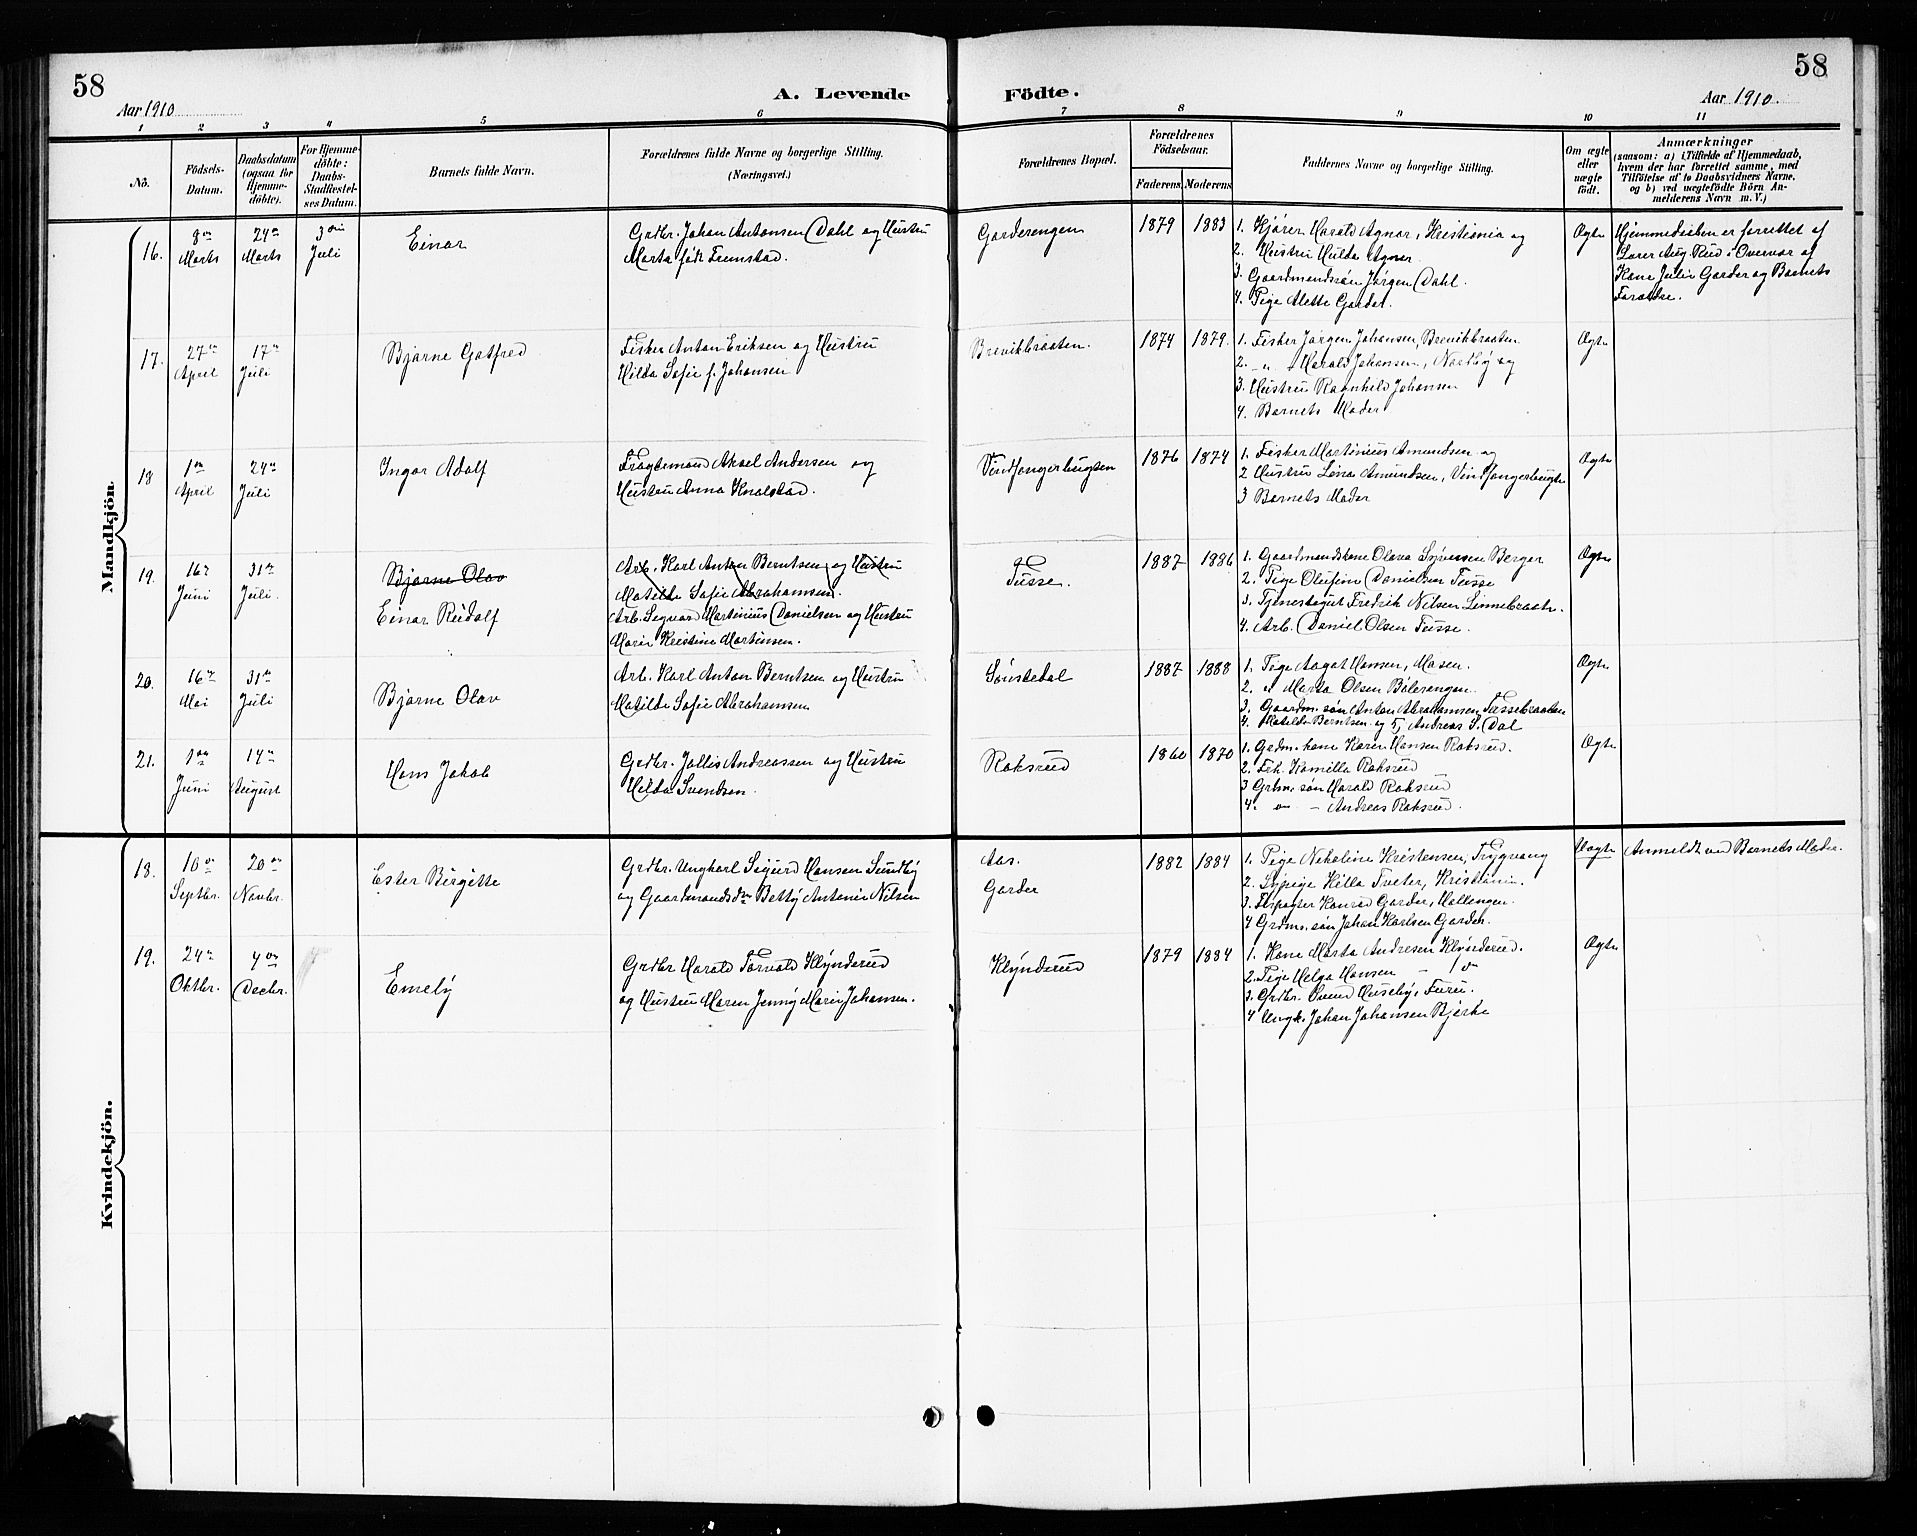 58
Aar 1910
A. Levende
1
2
3
4
5
6
Nö.
Födsels-
Datum.
Daabsdatum
(ogsaa for
Hjemme-
döbte).
For Hjemme-
döbte:
Daabs-
Stadfæstel-
ses Datum.
Barnets fulde Navn.
Forældrenes fulde Navne og borgerlige Stilling.
(Næringsvei.)
Födte.
58
Aar 1910.
7
8
9
10
11
Forældrenes Bopæl.
Forældrenes
Födselsaar.
Faderens.
Moderens.
Faddernes Navne og borgerlige Stilling.
Om ægte
eller
uægte
født.
Anmærkninger
(saasom: a) i Tilfælde af Hjemmedaab,
hvem der har forrettet samme, med
Tilföielse af to Daabsvidners Navne,
og b) ved uægtefödte Börn An-
melderens Navn m. V.)
Mandkjön.
16.
8de
Marts
24de
Marts
3die
Juli
Einar
Grdbr. Johan Antonsen Dahl og Hustru
Marta født Fremstad.
Garderengen
1879
1883
1. Kjører Harald Agnor, Kristiania og
2. Hustru Hulda Agnor
3. Gaardmandssøn Jørgen Dahl.
4. Pige Alette Garder.
Ægte
Hjemmedaaben er forrettet af
Lærer Aug. Rud i Overvær af
Kone Julie Garder og Barnets
Forældre.
17.
27de
April
17de
Juli
Bjarne Gotfred
Fisker Anton Eriksen og Hustru
Hilda Sofie f. Johansen
Brevikbraaten.
1874
1879.
1. Fisker Jørgen Johansen, Brevikbraaten
2. " Harald Johansen, Nordby og
3. Hustru Ragnhild Johansen
4. Barnets Moder
Ægte
18
1ste
April
24de
Juli
Ingar Adolf
Fragtemand Aksel Andersen og
Hustru Anna Knalstad.
Vindfangerbugten
1876
1874
1. Fisker Martinius Amundsen og
2 Hustru Lina Amundsen, Vindfangerbugten
3 Barnets Moder
Ægte
19.
16de
Juni
31te
Juli.
Bjarne Olav
Einar Rudolf
Arb. Karl Anton Berntsen og Hustru
Matilde Sofie Abrahamsen.
Arb. Sigvard Martinius Danielsen og Hustru
Marie Kristine Martinsen.
Tusse.
1887
1886
1. Gaardmandskone Olava Syversen Berger
2. Pige Olufine Danielsen Tusse
3. Tjenestegut Fredrik Nilsen Linnebraaten.
4. Arb. Daniel Olsen Tusse.
Ægte
20.
16de
Mai
31te
Juli
Bjarne Olav
Arb. Karl Anton Berntsen og Hustru
Matilde Sofie Abrahamsen
Sønstedal
1887
1888
1. Pige Aagot Hansen, Mosen.
2. " Marta Olsen Bølerengen.
3. Gaardm. søn Anton Abrahamsen Tussebraaten
4. Matilde Berntsen og 5, Andreas S. Dal
Ægte
21.
1ste
Juni
14de
August
Hans Jakob
Grdbr. Jollis Andreassen og Hustru
Hilda Svendsen
Roksrud
1860
1870
1. Grdm. kone Karen Hansen Roksrud.
2. Frk. Kamilla Roksrud
3 Grdm. søn Harald Roksrud
4. do – Andreas Roksrud.
Ægte
Kvindekjön.
18.
10de
Septbr.
20de
Novbr.
Ester Birgitte
Grdbr. Ungkarl Sigurd Hansen Sundby
og Gaardmandsdtr Betty Antonie Nilsen
Aas.
Garder
1882
1884
1. Pige Nikoline Kristensen, Trygvang
2. Sypige Hilla Tveter, Kristiania.
3. Forpagter Konrad Garder, Hallangen.
4 Grdm. søn Johan Karlsen Garder.
Uægte
Anmeldt ved Barnets Moder.
19.
24de
Oktbr.
4de
Decbr.
Emely
Grdbr Harald Torvald Klynderud
og Hustru Maren Jenny Marie Johansen.
Klynderud
1879
1884
1. Kone Marta Andresen Klynderud.
2. Pige Helga Hansen – do
3. Grdbr. Svend Huseby, Furu.
4 Ungk. Johan Johansen Bjerke
Ægte